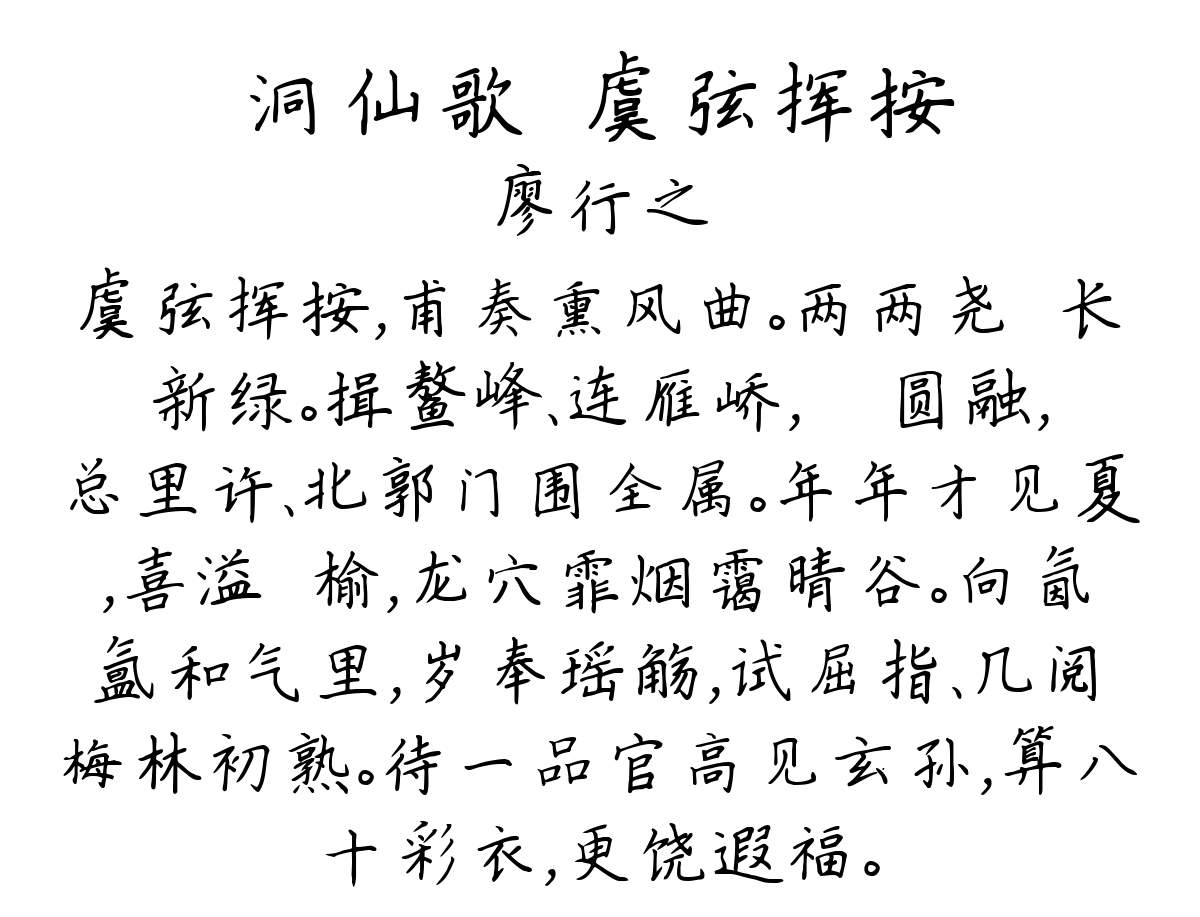 洞仙歌 虞弦挥按
廖行之
虞弦挥按,甫奏熏风曲。两两尧 长
新绿。揖鳌峰、连雁峤, 圆融,
总里许、北郭门围全属。年年才见夏
,喜溢 榆,龙穴霏烟霭晴谷。向氤
氲和气里,岁奉瑶觞,试屈指、几阅
梅林初熟。待一品官高见玄孙,算八
十彩衣,更饶遐福。